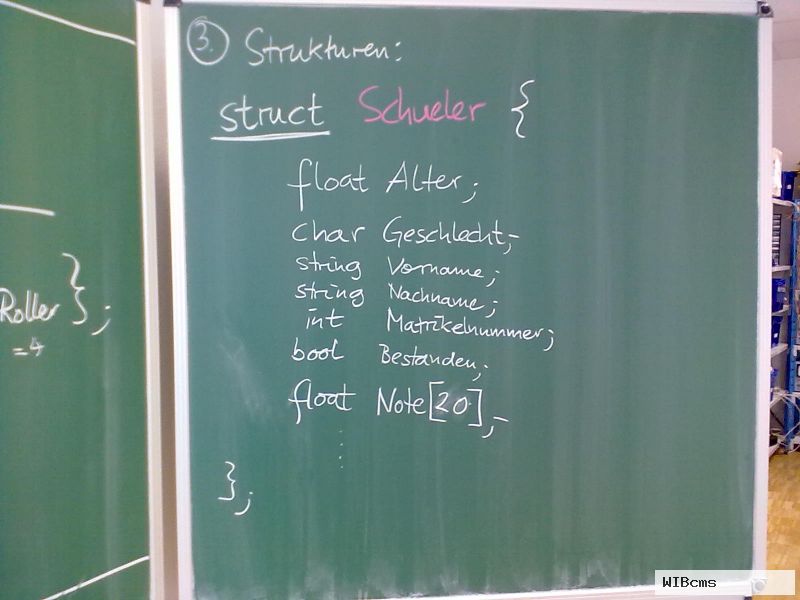 Roller };
=4
3. Strukturen:
struct Schueler {
float Alter;
char Geschlecht;
string Vorname;
string Nachname;
int Matrikelnummer;
bool Bestanden;
float Note[20];
⋮
};
WIBcms